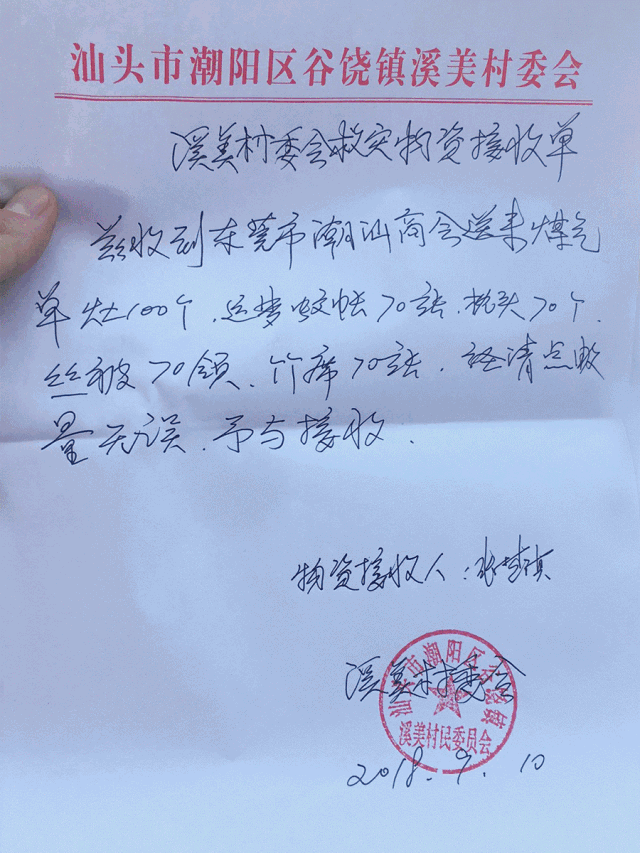 汕头市潮阳区谷饶镇溪美村委会
溪美村委会救灾物资接收单
兹收到东莞市潮汕商会送来煤气
单灶100个、运梦蚊帐70张、枕头70个、
丝被70领、竹席70张,经清点数
量无误,予与接收.
物资接收人:
溪美村委会
汕头市潮阳区谷饶镇
溪美村民委员会
2018.9.10